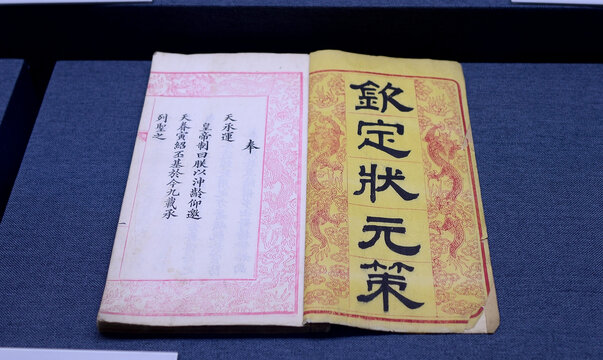 欽定狀元策
奉
天承運
皇帝制曰朕以沖齡仰邀
天眷寅紹丕基於今九載承
列聖之